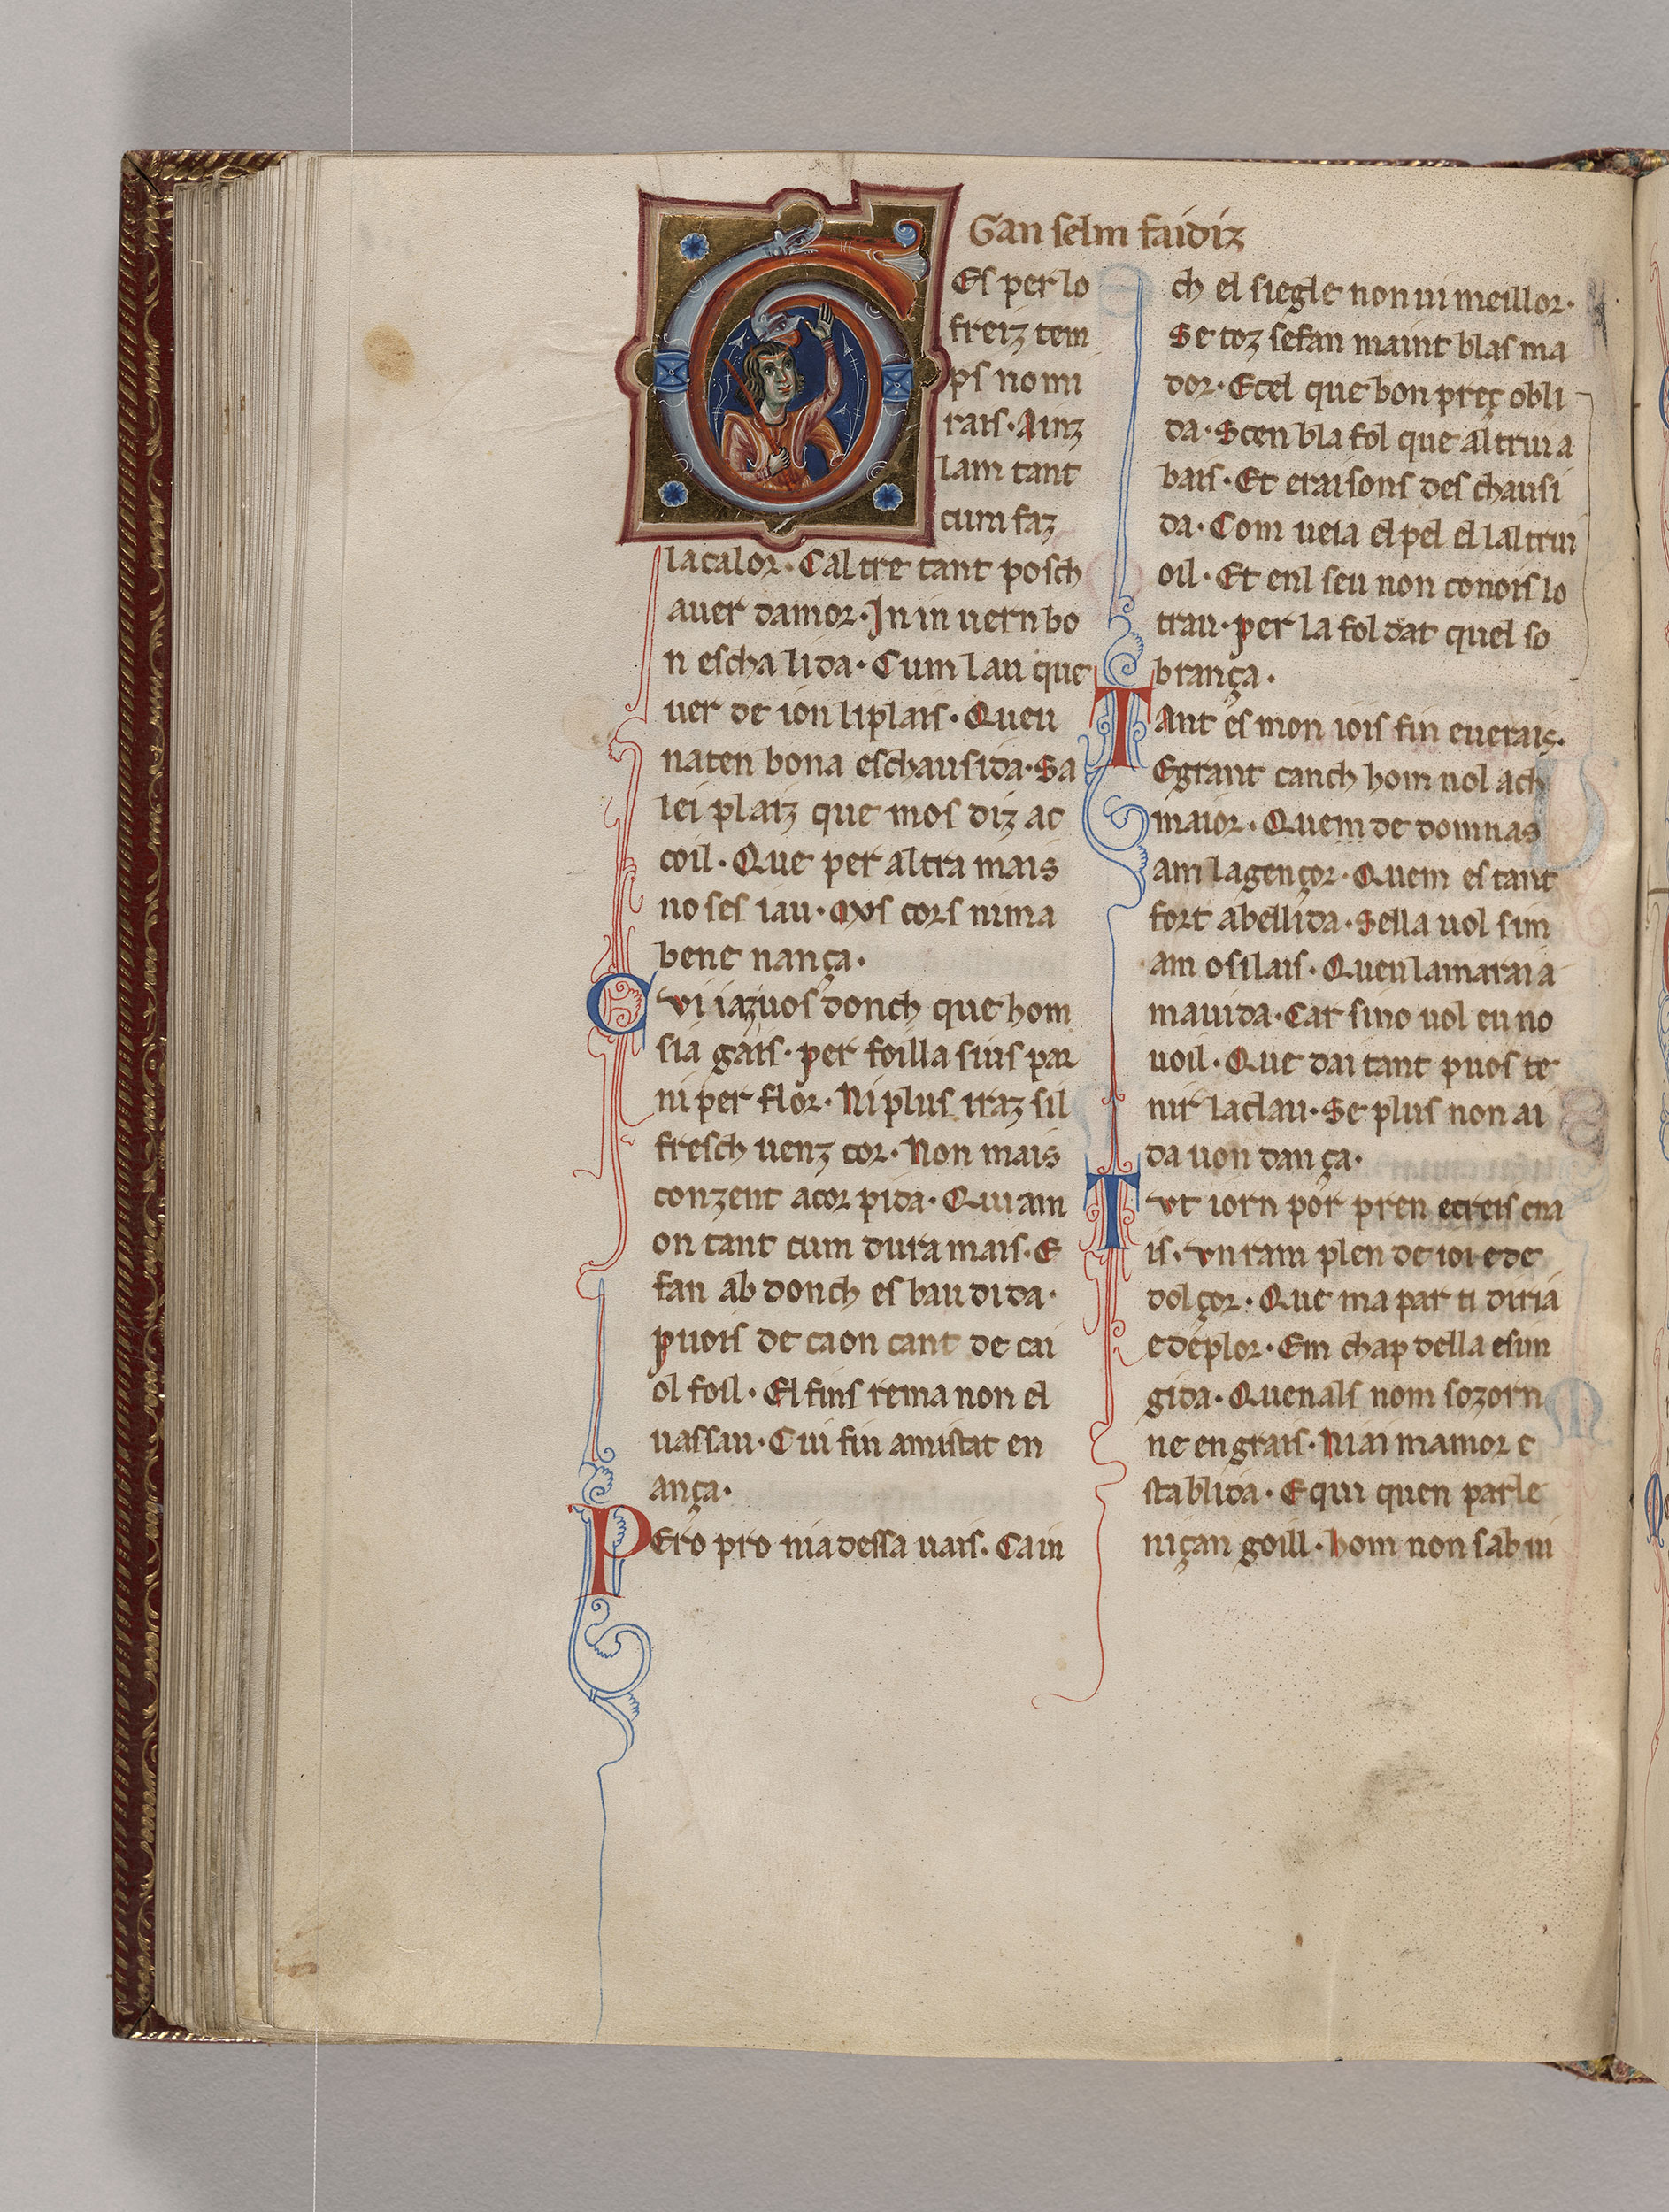 Gan selm faidiz
Ges per lo
freiz tem
ps no mi
rais· Ainz
lam tant
cum faz
la calor· Cal tre tant posch
auer damor· In in uern bo
n escha lida· Cum lau que
uer de ion li plais· Queu
naten bona eschausida· Sa
lei plaiz que mos diz ac
coil· Que per altra mais
no ses iau· Mos cors nima
bene nança·
Cvi iazuos donch que hom
sia gais· per foilla sius par
ni per flor· Ni plus iraz sil
fresch uenz cor· Non mais
conzent acor pida· Qui am
on tant cum dura mais· E
fan ab donch es bau di da·
puois de ca on cant de cai
ol foil· El fins rema non el
uassau· Cui fin amistat en
ança·
PEro pro nia dessa uais· Ca in
ch el siegle non ui meillor·
Se toz sefan maint blas ma
dor· Ecel que bon preç obli
da· Scen bla fol que altrui a
bais· Et erai sons des chausi
da· Com ueia el pel el laltrui
oil· Et enl seu non conois lo
trau· per la fol dat quel so
brança·
TAnt es mon iois fin euerais·
E grant canch hom nol ach
maior· Quem de domnas
am lagençor· Quem es tant
fort abellida· Sella uol sim
am o silais· Queu lamarai a
ma uida· Car sino uol eu no
uoil· Que dai tant puos te
nir la clau· Se plus non ai
da uon dan ça·
Tvt iorn por pren ecreis ena
is· vn ram plen de ioi e de
dol çor· Que ma par ti diria
e de plor· Em chap della esun
gida· Quenals nom sozorn
ne en grais· Ni ai mamor e
stablida· E qui quen parle
niçan goill· hom non sab ui